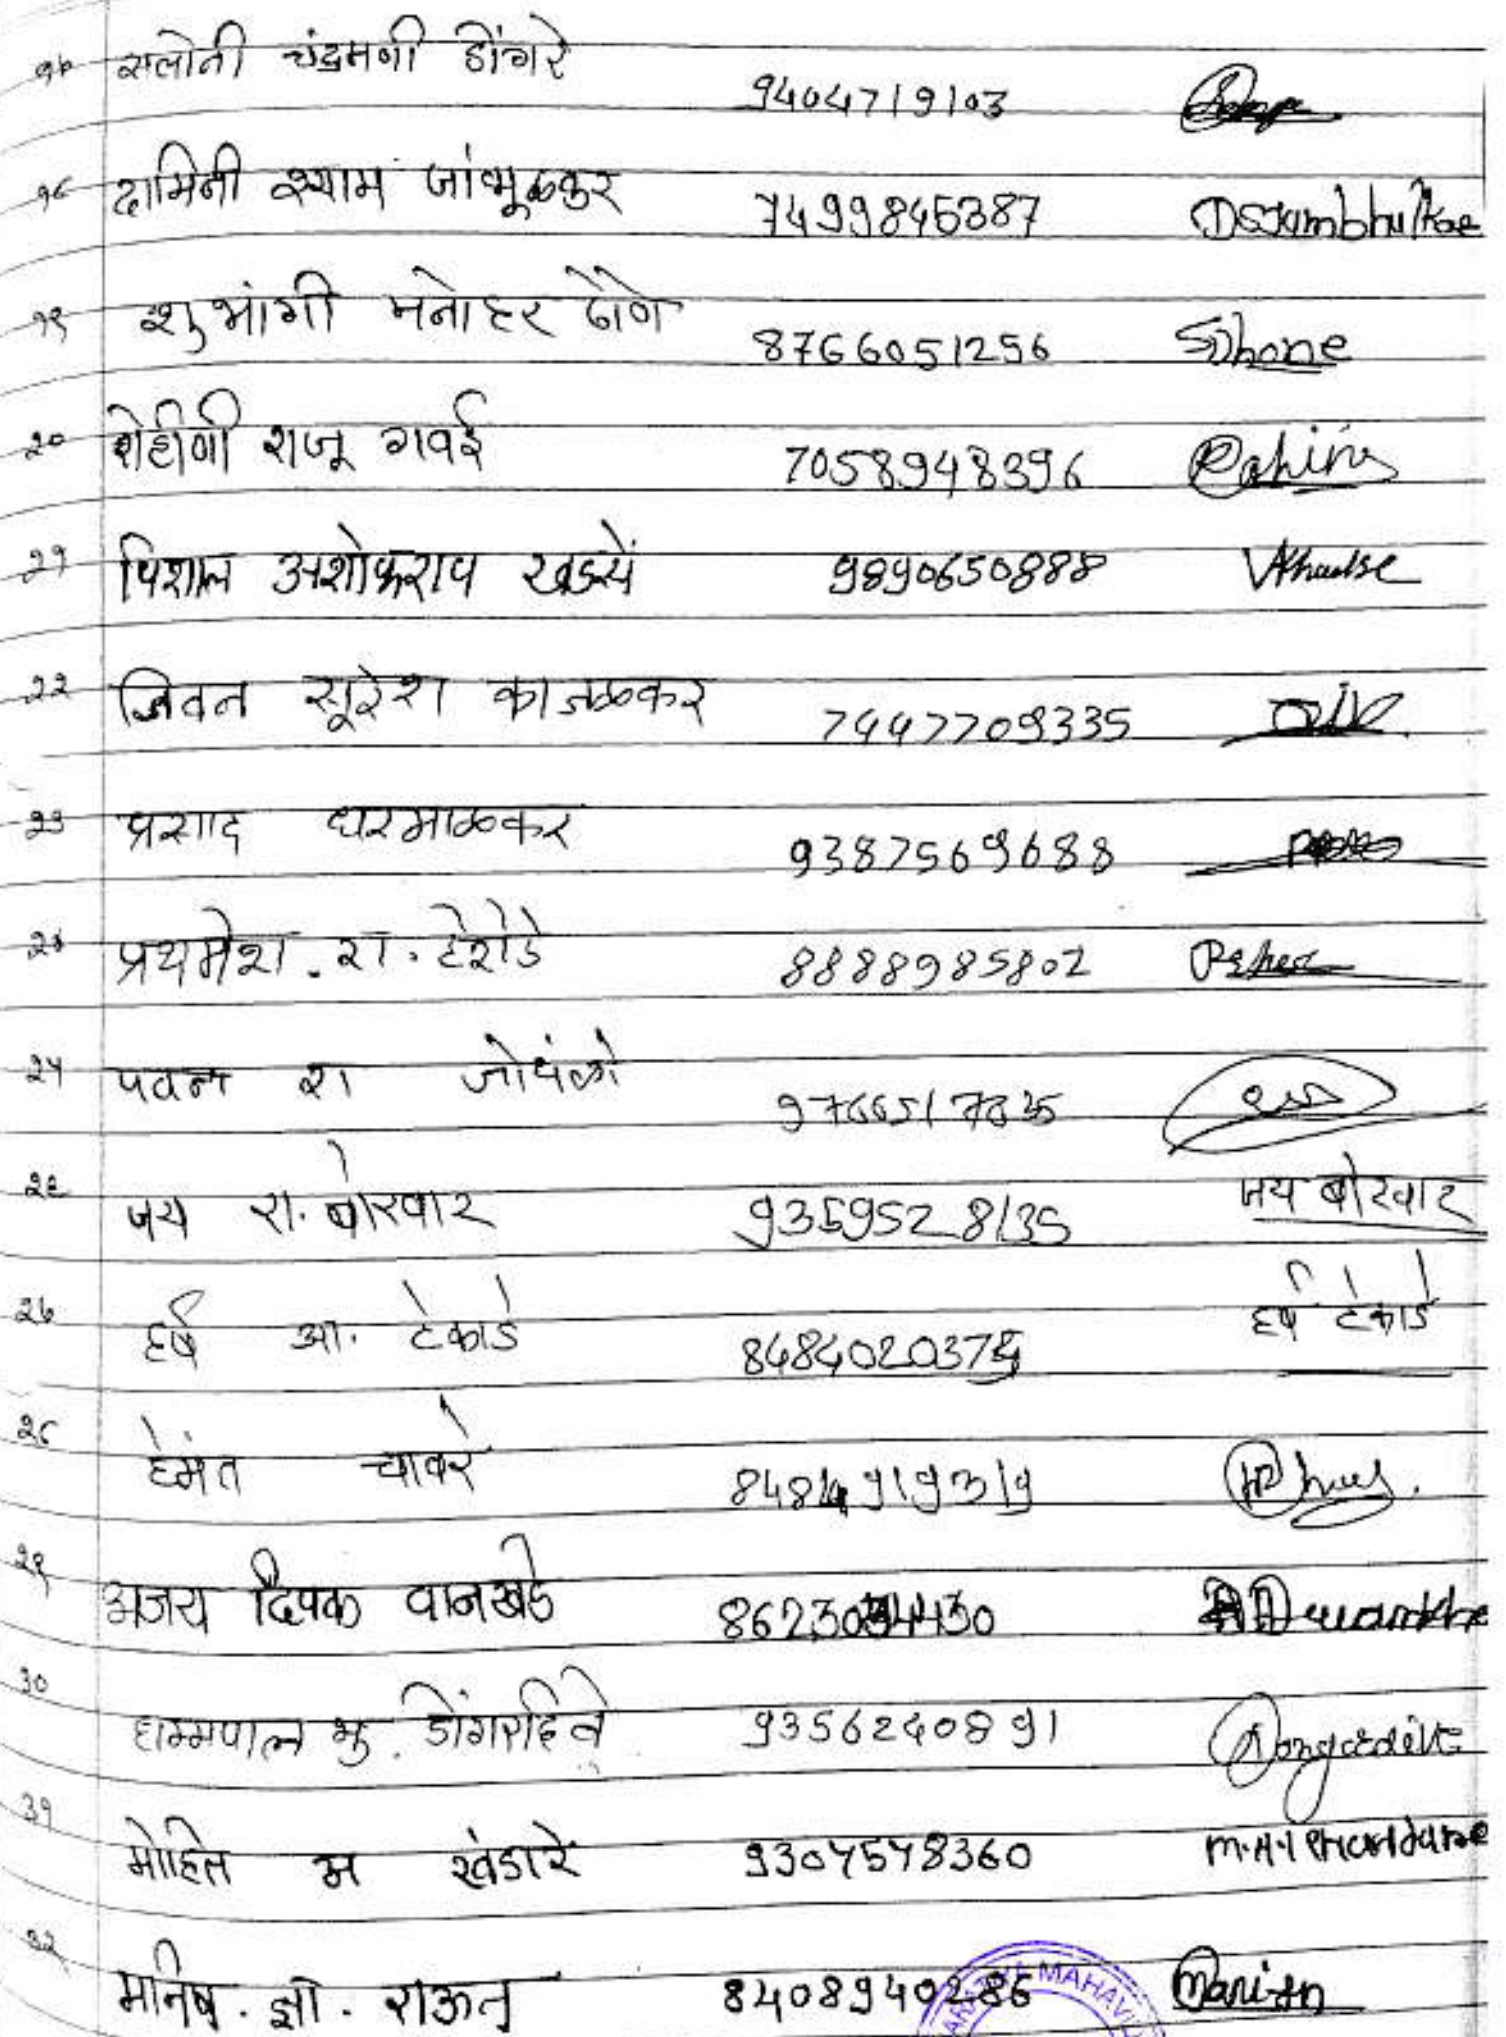 १७ सलोनी चंद्रमणी डोंगरे 9404719103
१८ दामिनी श्याम जांभूळकर 7499845387 DSJambhulkar
१९ शुभांगी मनोहर ढोणे 8766051256 SDhone
२० रोहीणी राजू गवई 7058948396 Rohini
२१ विशाल अशोकराव खडसें 9890650888 VKhadse
२२ जिवन सूरेश काजळकर 7447709335
२३ प्रसाद घरमाळकर 9387569688
२४ प्रथमेश . रा . टेरोडे 8888985802
२५ पवन रा 9766517835
२६ जय रा. बोरवार 9359528135 जय बोरवार
२७ हर्ष आ. टेकाडे हर्ष टेकाडे
२८ हेमंत चावरे 8484919319
२९ अजय दिपक वानखडे
३० धम्मपाल भु. डोंगरदिवे 9356240891 Dongardive
३१ मोहित म खंडारे 9307578360
३२ मनिष . ज्ञा . राऊत 8408940286 Manish
MAHAVI